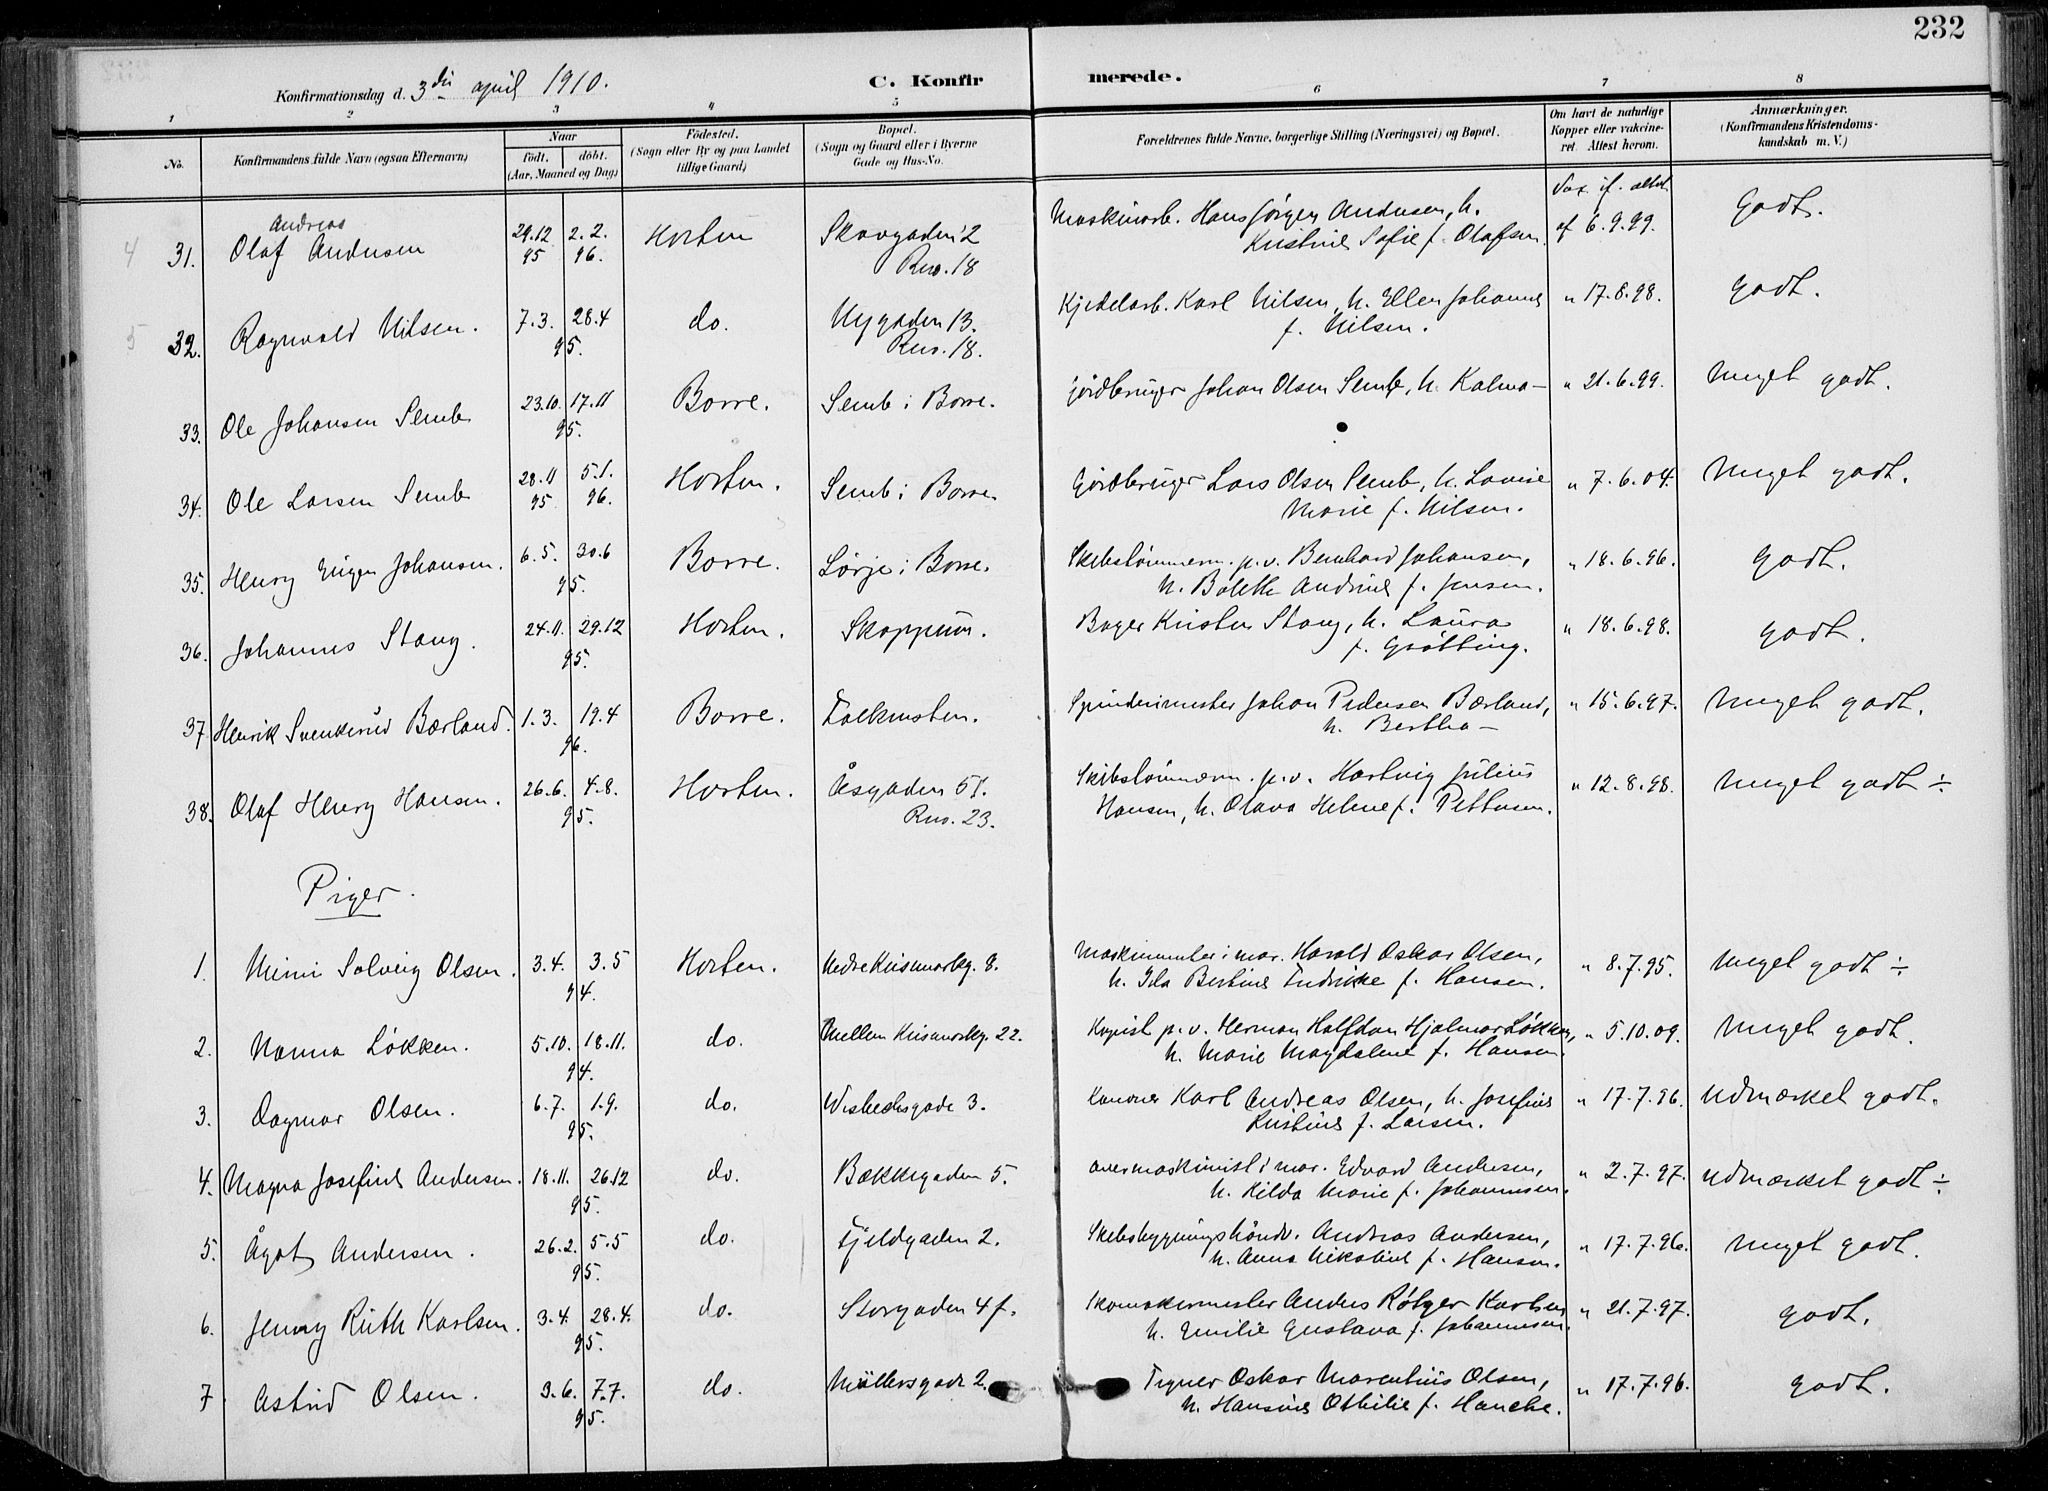 232
Konfirmationsdag d. 3die april 1910.
C. Konfirmerede.
1 2 3 4 5 6 7 8
No.
Konfirmandens fulde Navn (ogsaa Efternavn)
Naar
født. døbt.
(Aar, Maaned og Dag)
Fødested.
(Sogn eller By og paa Landet
tillige Gaard)
Bopæl.
(Sogn og Gaard eller i Byerne
Gade og Hus-No.
Forældrenes fulde Navne, borgerlige Stilling (Næringsvei) og Bopæl.
Om havt de naturlige
Kopper eller vakcine-
ret. Attest herom.
Anmærkninger.
(Konfirmandens Kristendoms-
kundskab m. V.)
Vax. if. attest
4 31. Olaf Andreas Andersen 29.12 95 2.2. 96. Horten Skovgaden 2 Rno. 18 Maskinarb. Hans Jørgen Andersen, h. Kristine Sofie f. Olafsen. af 6.9.99. Godt.
5 32. Ragnvald Nilsen. 7.3. 28.4 95. do. Nygaden 13. Rno. 18. Kjedelarb. Karl Nilsen, h. Ellen Johanne f. Nilsen. " 17.8.98. Godt.
33. Ole Johansen Semb 23.10. 17.11 95. Borre. Semb i Borre. Gårdbruger Johan Olsen Semb, h. Kalma — " 21.6.99. Meget godt.
34. Ole Larsen Semb 28.11 95 5.1. 96. Horten. Semb i Borre. Gårdbruger Lars Olsen Semb, h. Lovise Marie f. Nilsen. " 7.6.04. Meget godt.
35. Henry Eugen Johansen. 6.5. 30.6 95. Borre. Sørje i Borre. Skibstømmerm. p.v. Bernhard Johansen, h. Bolette Andrine f. Jensen. " 18.6.96. Godt.
36. Johannes Stang. 24.11. 29.12 95. Horten. Skoppum. Bager Kristen Stang, h. Laura f. Grøtting. " 18.6.98. Godt.
37. Henrik Svenkerud Bærland. 1.3. 19.4 96. Borre. Falkensten. Spinderimester Johan Pedersen Bærland, h. Bertha — " 15.6.97. Meget godt.
38. Olaf Henry Hansen. 26.6. 4.8. 95. Horten. Åsgaden 51. Rno. 23. Skibstømmerm. p.v. Hartvig Julius Hansen, h. Olava Helene f. Pettersen. " 12.8.98. Meget godt ÷
Piger.
1. Mimi Solveig Olsen. 3.4. 3.5 94. Horten. Nedre Keisemarkg. 8. Maskinmester i mar. Harald Oskar Olsen, h. Ida Bertine Fredrikke f. Hansen. " 8.7.95. Meget godt ÷
2. Nanna Løkken. 5.10. 18.11. 94. do. Mellem Keisemarkg. 22. Kopist p.v. Herman Halfdan Hjalmar Løkken, h. Marie Magdalene f. Hansen. " 5.10.09. Meget godt.
3. Dagmar Olsen. 6.7. 1.9. 95. do. Wisbechsgade 3. Kanoner Karl Andreas Olsen, h. Josefine Kristine f. Larsen. " 17.7.96. Udmærket godt.
4. Magna Josefine Andersen. 18.11. 26.12 95. do. Bakkegaden 5. Overmaskinist i mar. Edvard Andersen, h. Hilda Marie f. Johannesen. " 2.7.97. Udmærket godt ÷
5. Ågot Andersen. 26.2. 5.5 95. do. Fjeldgaden 2. Skibsbygningshåndv. Andreas Andersen, h. Anna Nikoline f. Hansen. " 17.7.96. Meget godt.
6. Jenny Ruth Karlsen. 3.4. 28.4. 95. do. Storgaden 4 f. Skomakermester Anders Røtger Karlsen h. Emilie Gustava f. Johannesen. " 21.7.97. Godt.
7 Astrid Olsen. 3.6. 7.7. 95. do. Møllersgade 2. Tegner Oskar Marentius Olsen, h. Hansine Othilie f. Hanche. " 17.7.96. Godt.